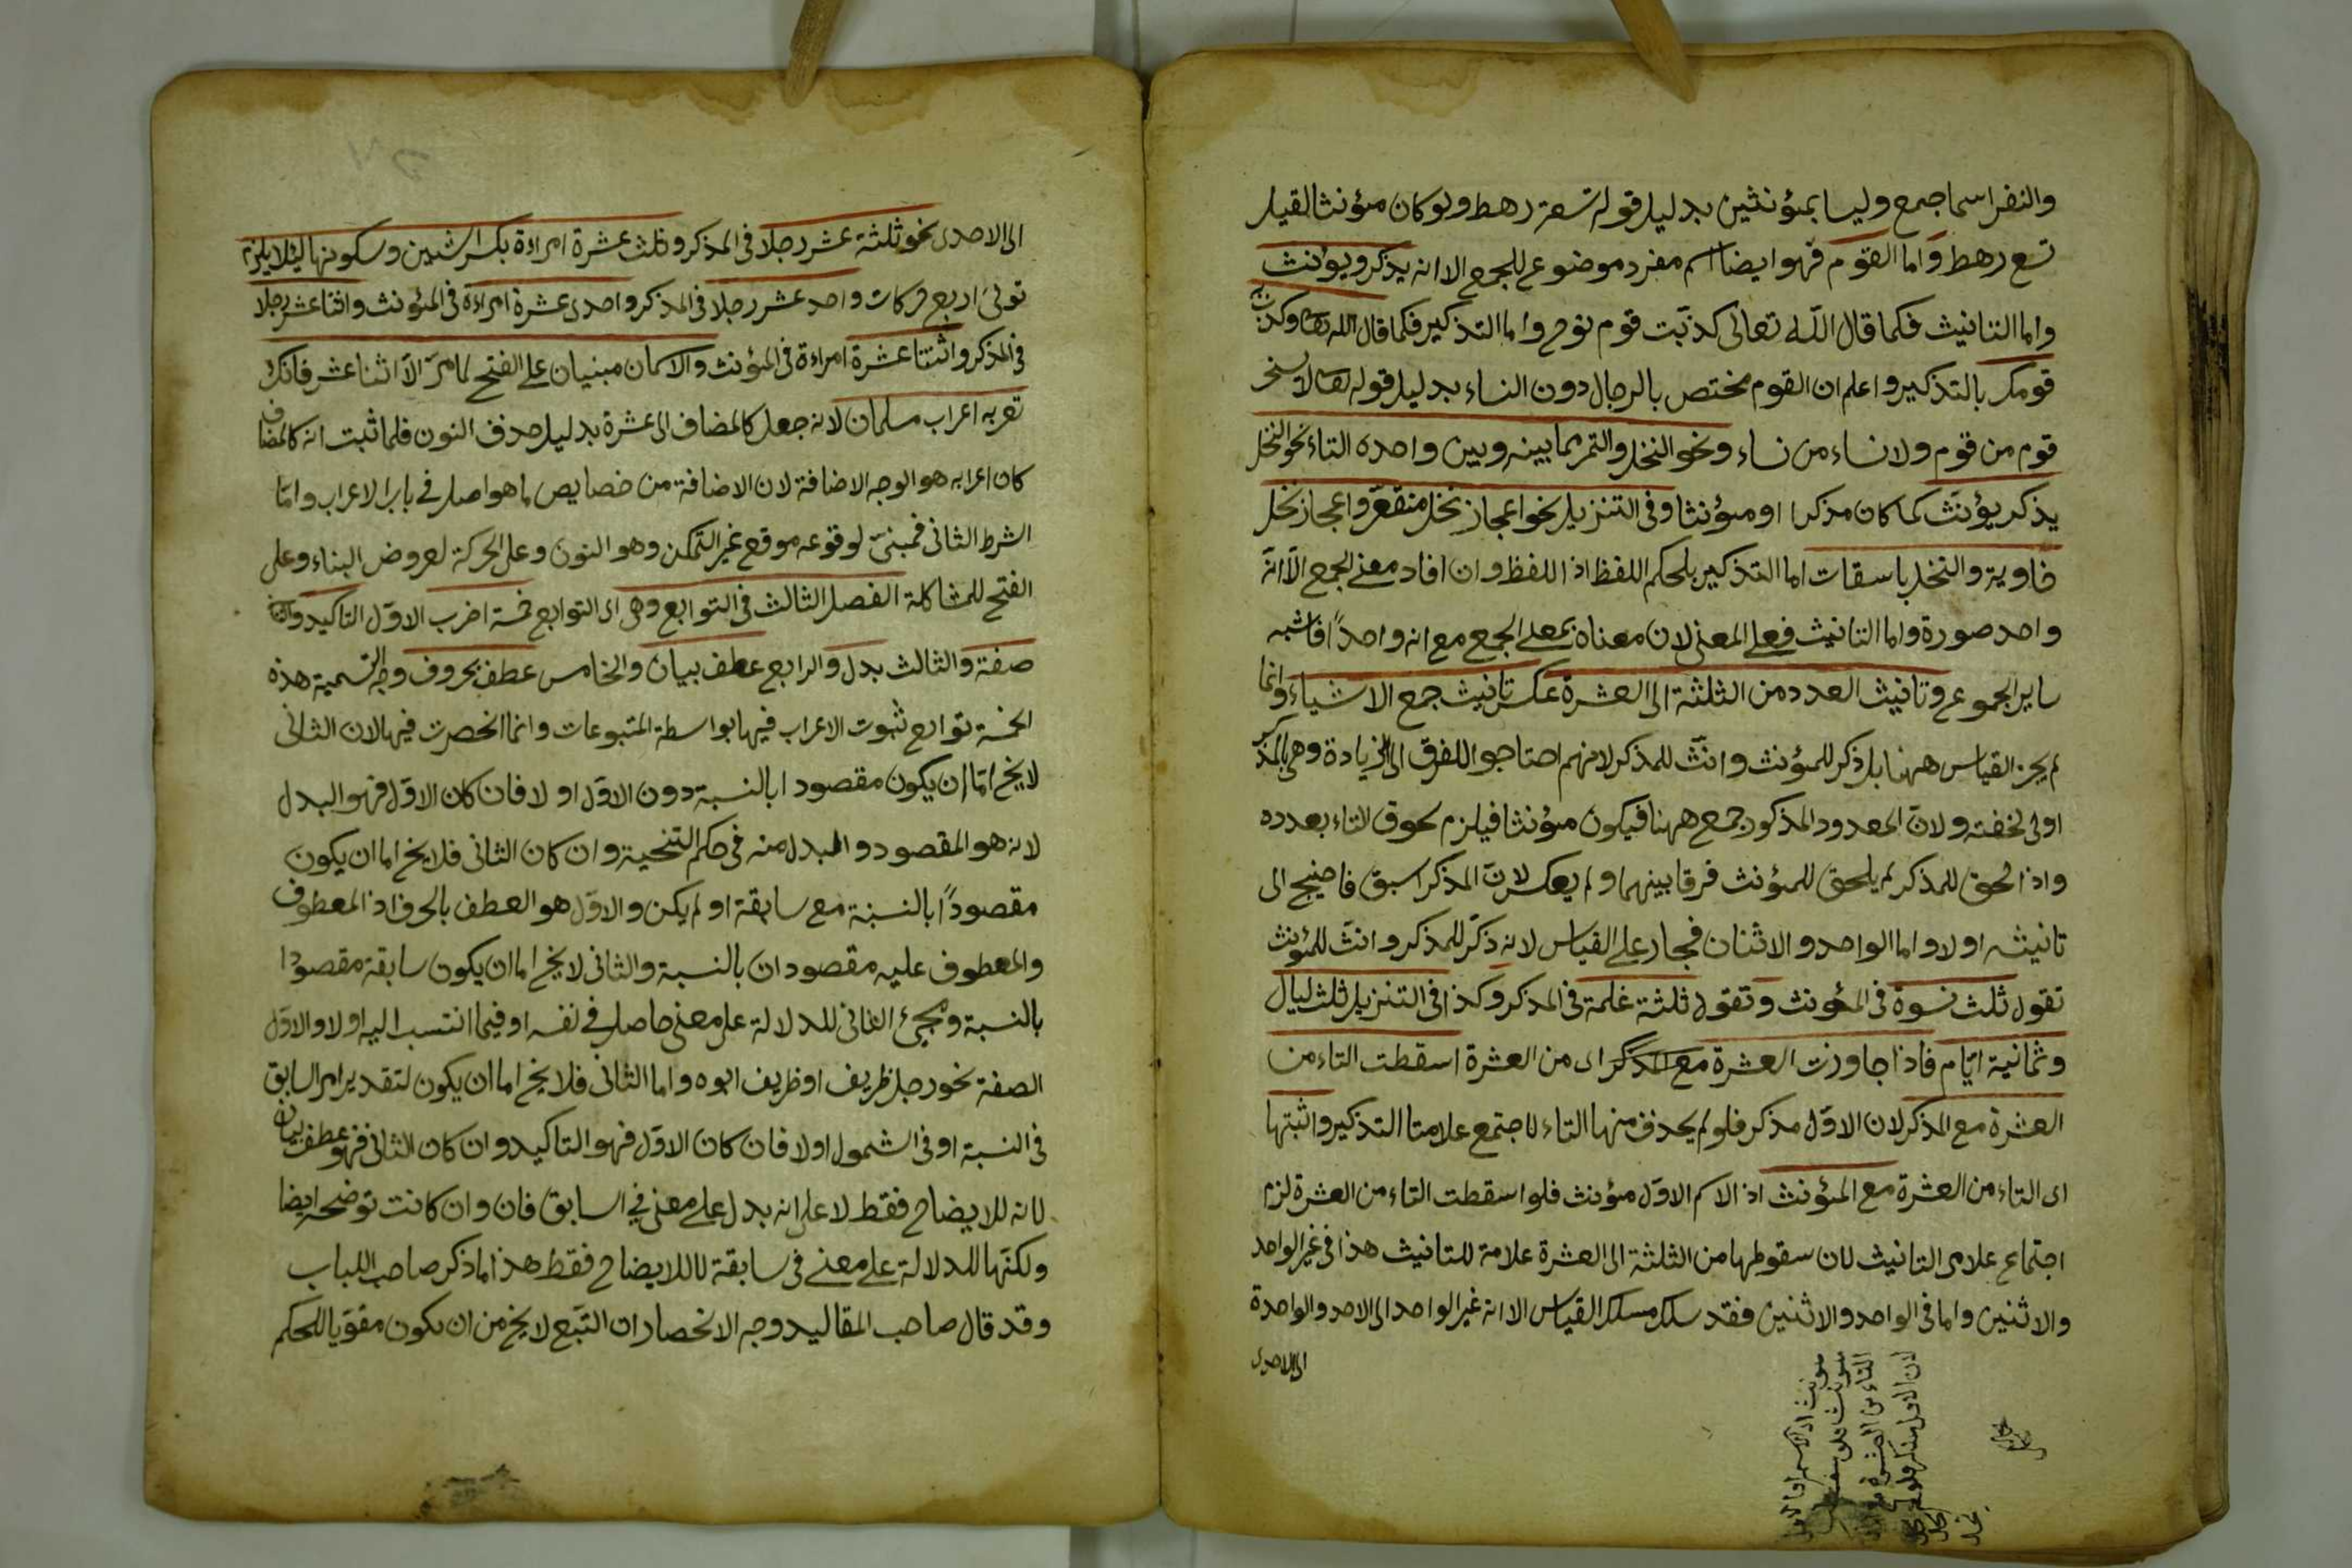 والنفر اسما جمع وليسا بمؤنثين بدليل قوله تسعة رهط ولو كان مؤنثا لقيل
تسع رهط واما القوم فهو ايضا اسم مفرد موضوع للجمع الا انه يذكر ويؤنث
واما التانيث فكما قال اللّه تعالى كذّبت قوم نوح واما التذكير فكما قال الله تعا وكذب
قومك بالتذكير واعلم ان القوم مختص بالرجال دون النساء بدليل قوله تعا لا يسخر
قوم من قوم ولا نساء من نساء ونحو النخل والتمر مما بينه وبين واحده التاء نحو النخل
يذكر يؤنث كما كان مذكرا او مؤنثا وفى التنزيل نحو اعجاز نخل منقعر واعجاز نخل
خاوية والنخل باسقات اما التذكير بلحكم اللفظ اذ اللفظ وان افاد معنى الجمع الّا انّه
واحد صورة واما التانيث فعلى المعنى لان معناه بمعنى الجمع مع انه واحداً فاشبه
ساير الجموع وتانيث العدد من الثلثة الى العشرة عكس تانيث جمع الاشياء وانما
لم يجز القياس ههنا بل ذكر للمؤنث وانّث للمذكر لانهم احتاجوا للفرق الى الزيادة وهى بالمذكر
اولى لخفته ولانّ المعدود المذكور جمع ههنا فيكون مؤنثا فيلزم لحوق التاء بعدده
واذا لحق للمذكر لم يلحق للمؤنث فرقا بينهما ولم يعكس لانّ المذكر اسبق فاحتيج الى
تانيثه اولا واما الواحد والاثنان فجار على القياس لانه ذكّر للمذكر وانّث للمؤنث
تقول ثلث نسوة فى المؤنث وتقول ثلثة غلمة فى المذكر وكذا فى التنزيل ثلث ليال
وثمانية ايّام فاذا جاوزت العشرة مع المذكر اى من العشرة اسقطت التاء من
العشرة مع المذكر لان الاوّل مذكر فلو لم يحذف منها التاء لاجتمع علامتا التذكير واثبتها
اى التاء من العشرة مع المؤنث اذ الاسم الاوّل مؤنث فلو اسقطت التاء من العشرة لزم
اجتماع علامى التانيث لان سقوطها من الثلثة الى العشرة علامة للتانيث هذا فى غير الواحد
والاثنين واما فى الواحد والاثنين فقد سلك مسلك القياس الا انه غير الواحد الى الاحد والواحدة
الى الاحدى
لان الاول مذكر فلو لم
التاء من العشرة
مونث فلو سقط
مونث اذ الاسم الاول
الى الاحدى نحو ثلثة عشر رجلا فى المذكر وثلث عشرة امراءة بكسر الشين وسكونها لئلا يلزم
توالى اربع حركات واحد عشر رجلا فى المذكر واحدى عشرة امراءة فى المؤنث واثنا عشر رجلا
فى المذكر واثنتا عشرة امراءة فى المؤنث والاسمان مبنيان على الفتح لما مرّ الّا اثنا عشر فانك
تعربه اعراب مسلمان لانه جعل كالمضاف الى عشرة بدليل حذف النون فلما ثبت انه كالمضاف
كان اعرابه هو الوجه الاضافة لان الاضافة من خصايص ما هو اصل فى باب الاعراب وامّا
الشرط الثانى فمبنىّ لوقوعه موقع غير التمكن وهو النون وعلى الحركة لعروض البناء وعلى
الفتح للمشاكلة الفصل الثالث فى التوابع وهى اى التوابع خمسة اضرب الاوّل التاكيد والثانى
صفة والثالث بدل والرابع عطف بيان والخامس عطف بحروف وجه التسمية هذه
الخمسة توابع ثبوت الاعراب فيها بواسطة المتبوعات وانما انحصرت فيها لان الثانى
لا يخ امّا ان يكون مقصودا بالنسبة دون الاوّل او لا فان كان الاوّل فهو البدل
لانه هو المقصود والمبدل منه فى حكم التنحية وان كان الثانى فلا يخ اما ان يكون
مقصوداً بالنسبة مع سابقة او لم يكن والاوّل هو العطف بالحرف اذ المعطوف
والمعطوف عليه مقصودان بالنسبة والثانى لا يخ اما ان يكون سابقة مقصودا
بالنسبة ومجىء الثانى للدلالة على معنى حاصل فى نفسه او فيما انتسب اليه او لا والاوّل
الصفة نحو رجل ظريف او ظريف ابوه واما الثانى فلا يخ اما ان يكون لتقدير امر السابق
فى النسبة او فى الشمول او لا فان كان الاوّل فهو التاكيد وان كان الثانى فهو عطف بيان
لانه للايضاح فقط لا على انه يدل على معنى فى السابق فان وان كانت توضحه ايضا
ولكنّها للدلالة على معنى فى سابقة لا للايضاح فقط هذا ما ذكر صاحب اللباب
وقد قال صاحب المقاليد وجه الانحصار ان التبّع لا يخ من ان يكون مقوّيا للحكم